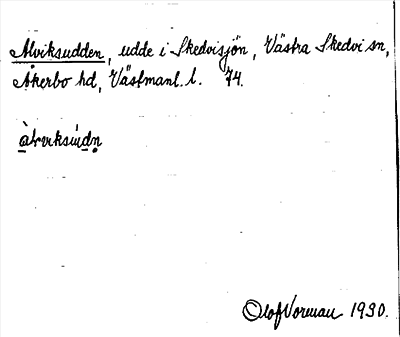 Alviksudden, udde i Skedvisjön, Västra Skedvi sn,
Åkerbo hd, Västmanl. l. 74.
Olof Vorenau 1930.